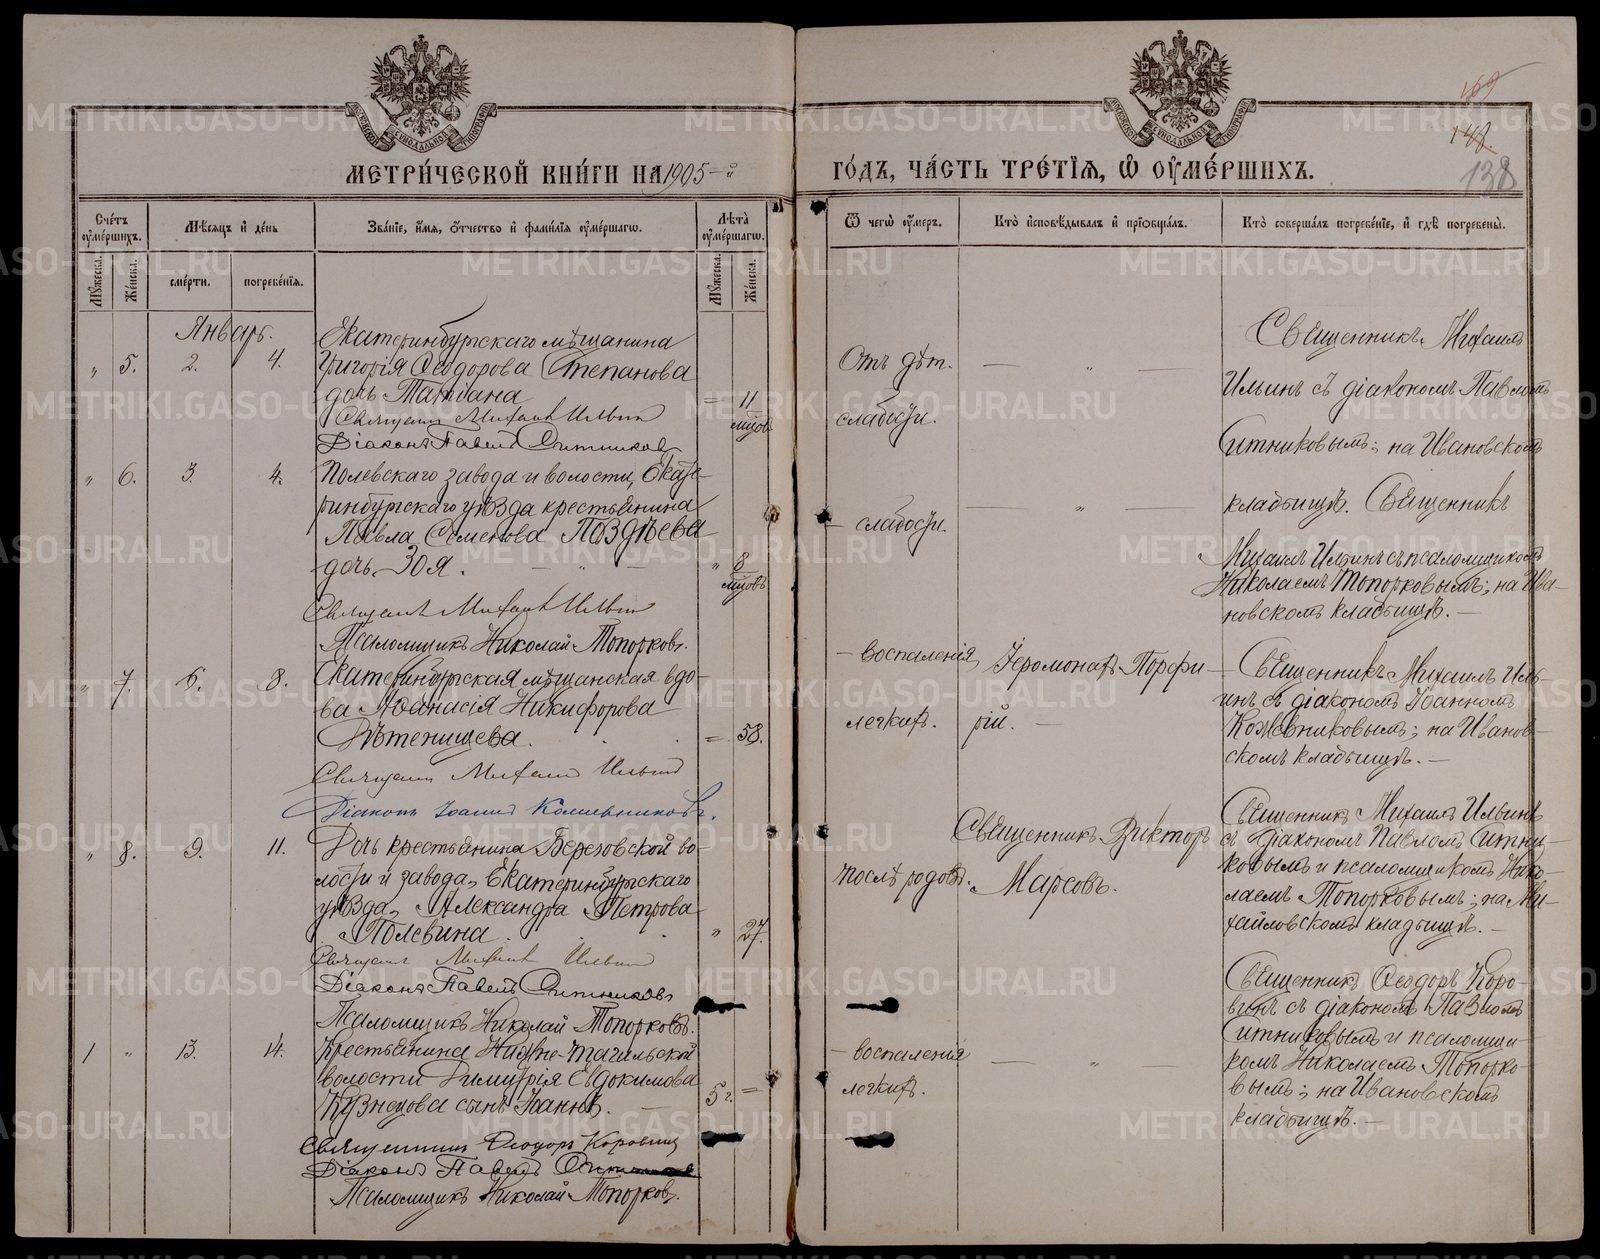 169
148.
138
МЕТРИ́ЧЕСКОЙ КНИ́ГИ НА 1905-й ГО́ДЪ, ЧА́СТЬ ТРЕ́ТЇѦ, Ѡ ОУ҆МЕ́РШИХЪ.
Сче́тъ оу҆ме́ршихъ.
Мѣ́сѧцъ и҆ де́нь
Зва́нїе, и҆́мѧ, ѻ҆́тчество и҆ фами́лїѧ оу҆ме́ршагѡ.
Лѣ́та оу҆ме́ршагѡ.
Ѿ чегѡ̀ оу҆́меръ.
Кто̀ и҆сповѣ́дывалъ и҆ прїѻбща́лъ.
Кто̀ соверша́лъ погребе́нїе, и҆ гдѣ̀ погребены̀.
Мꙋ́жеска.
Же́нска.
сме́рти.
погребе́нїѧ.
Мꙋ́жеска.
Же́нска.
Январь.
„ 5. 2. 4.
Екатеринбургскаго мѣщанина
Григорія Ѳеодорова Степанова
дочь Татіана = 11 мѣсов
Священн Михаил Ильин
Діаконъ Павелъ Ситников
Отъ дѣт.
слабости.
— „ —
Священникъ Михаилъ
Ильинъ съ діакономъ Павломъ
Ситниковымъ; на Ивановскомъ
кладбищѣ.
„ 6. 3. 4.
Полевскаго завода и волости, Екате-
ринбургскаго уѣзда крестьянина
Павла Семенова Поздѣева
дочь Зоя. — „ — „ 8 мѣсовъ
Священникъ Михаил Ильин
Псаломщикъ Николай Топорковъ.
— слабости.
— „ —
Священникъ
Михаилъ Ильинъ съ псаломщикомъ
Николаемъ Топорковымъ; на Ива-
новскомъ кладбищѣ. —
„ 7. 6. 8.
Екатеринбургская мѣщанская вдо-
ва Аѳанасія Никифорова
Вѣтенищева. = 58.
Священн Михаил Ильин
Діаконъ Іоаннъ Кожевниковъ.
— воспаленія
легкихъ.
Іеромонахъ Порфи-
рій. —
Священникъ Михаилъ Иль-
инъ съ діакономъ Іоанномъ
Кожевниковымъ; на Иванов-
скомъ кладбищѣ. —
„ 8. 9. 11.
Дочь крестьянина Березовской во-
лости и завода, Екатеринбургскаго
уѣзда, Александра Петрова
Полевина. „ 27.
Священн Михаил Ильин
Діаконъ Павелъ Ситниковъ
Псаломщикъ Николай Топорковъ.
послѣ родовъ.
Священникъ Викторъ
Марсовъ.
Священникъ Михаилъ Ильинъ
съ діакономъ Павломъ Ситни-
ковымъ и псаломщикомъ Нико-
лаемъ Топорковымъ; на Ми-
хайловскомъ кладбищѣ. —
1 „ 13. 14.
Крестьянина Нижне-Тагильской
волости Димитрія Евдокимова
Кузнецова сынъ Іоаннъ. — 5 г. =
Священник Ѳеодоръ Коровин
Діаконъ Павелъ
Псаломщикъ Николай Топорковъ.
— воспаленія
легкихъ.
— „ —
Священникъ Ѳеодоръ Коро-
винъ съ діакономъ Павломъ
Ситниковымъ и псаломщи-
комъ Николаемъ Топорко-
вымъ; на Ивановскомъ
кладбищѣ. —
METRIKI.GASO-URAL.RU